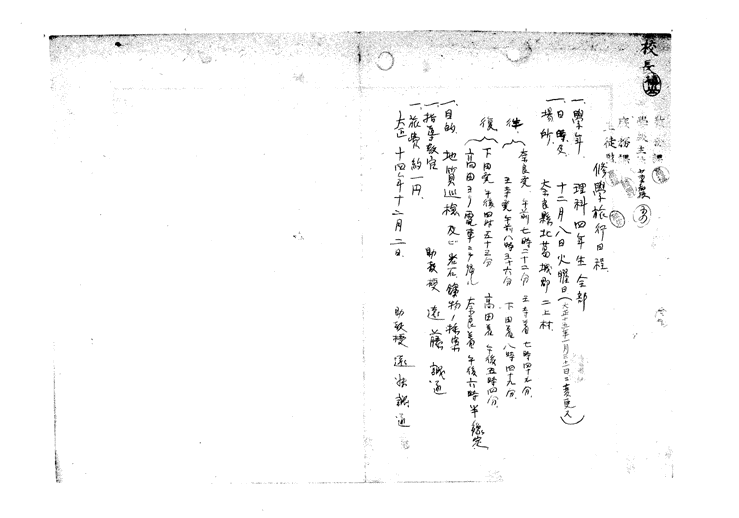 校長
修學旅行日程
一、學年 理科四年生全部
一、日時 十二月八日火曜日(大正十五年一月二十一日ニ変更ス)
一、場所 奈良縣北葛城郡二上村
往 奈良発 午前七時二十二分 王寺着 七時四十九分
王寺発 午前八時三十六分 下田着 八時四十九分
復 下田発 午後四時五十三分 高田着 午後五時四分
高田ヨリ電車ニテ帰ル 奈良着 午後六時半 予定
一、目的 地質巡検及ビ岩石鑛物ノ採集
一、指導教官 助教授 遠藤誠道
一、旅費 約一円
大正十四年十二月二日 助教授 遠藤誠道